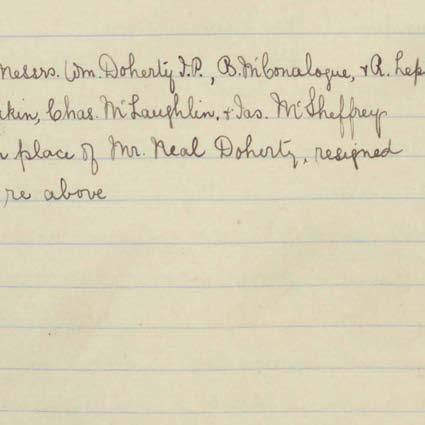 Messrs. Wm. Doherty J.P., B. McConalogue, & R. Hep
rkin, Chas. McLaughlin, & Jas. McSheffrey
n place of Mr. Neal Doherty, resigned
re above